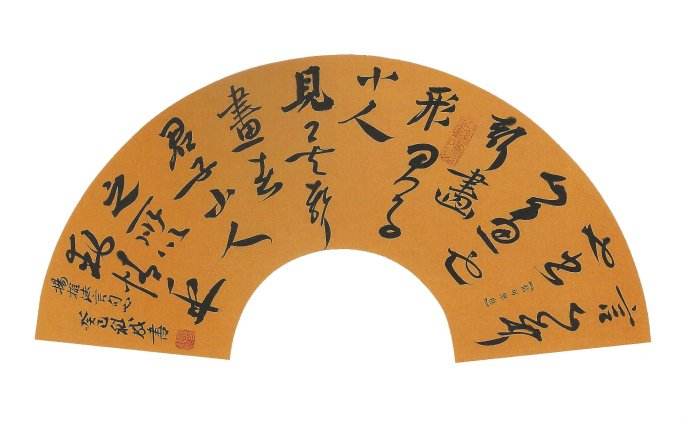 言心聲
也書
心画也
聲畫
形君子
小人
見矣聲
畫者
君子小人
之所以
動情乎
揚雄法言句
癸巳 書